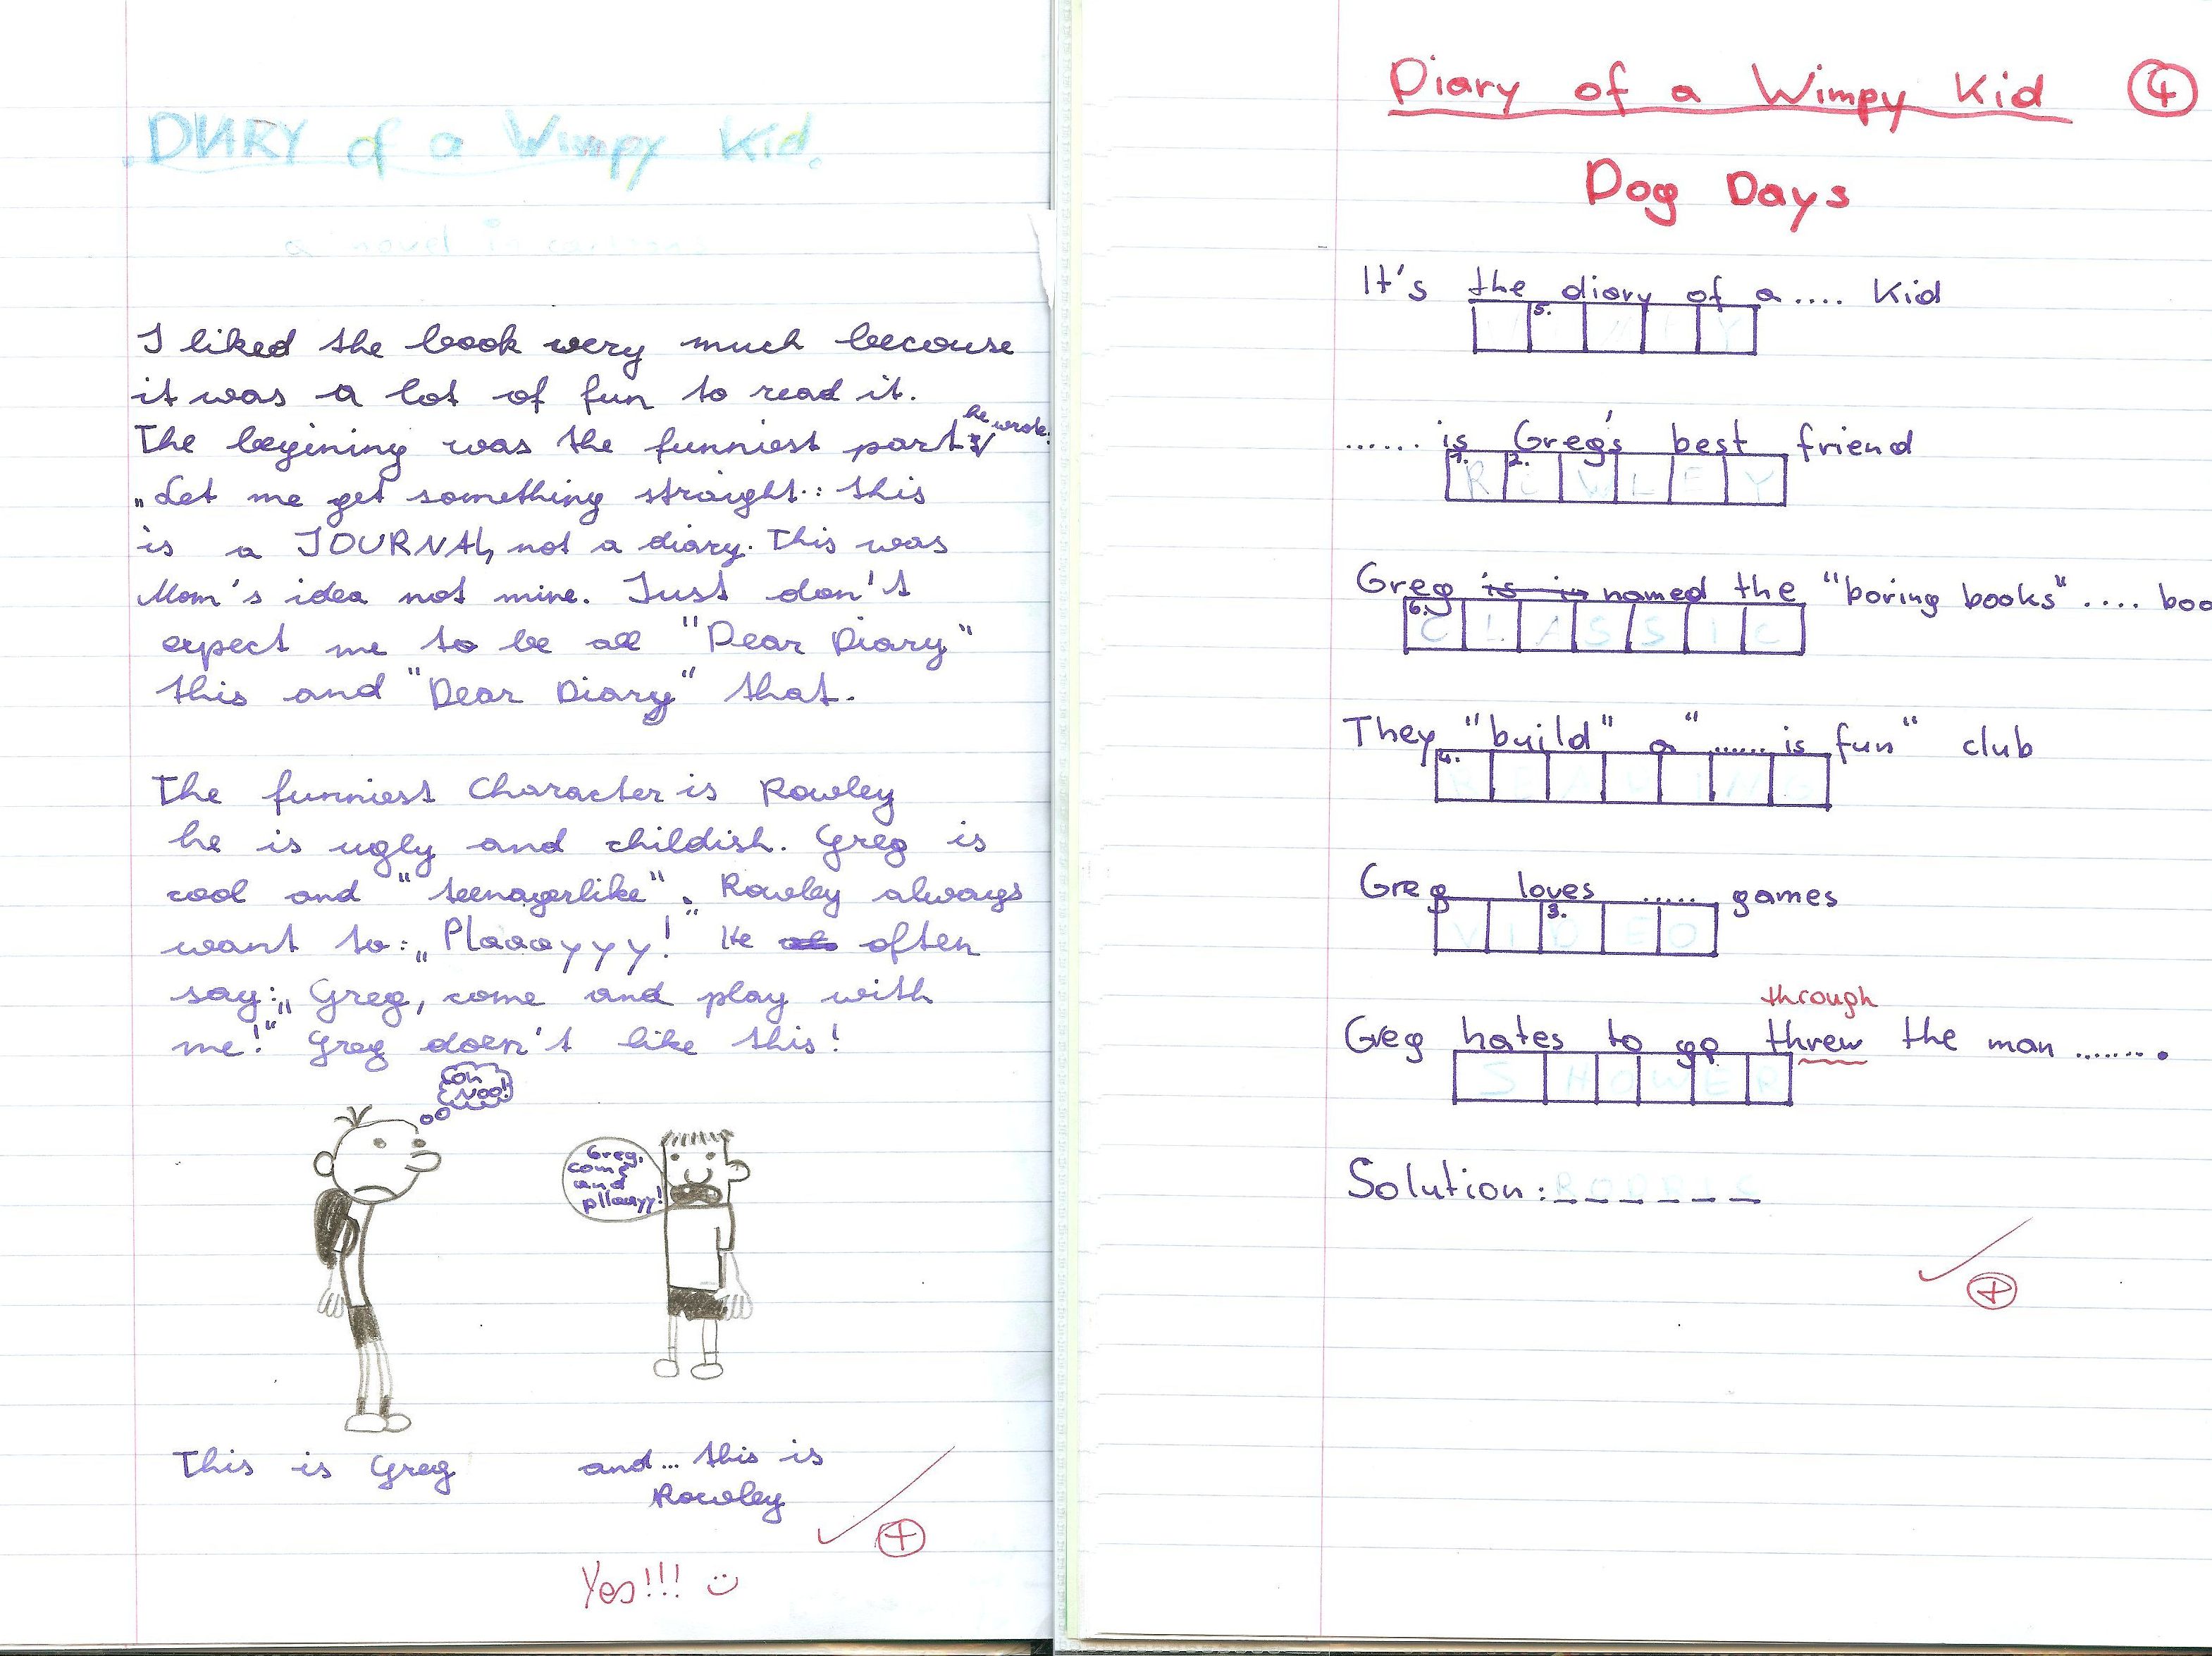 DIARY of a Wimpy Kid.
a novel in cartoons
I liked the book very much becouse
it was a lot of fun to read it.
The begining was the funniest part he wrote:
„Let me get something straight: this
is a JOURNAL, not a diary. This was
Mom's idea not mine. Just don't
expect me to be all "Dear Diary"
this and "Dear Diary" that.
The funniest Character is Rowley
he is ugly and childish. Greg is
cool and "teenagerlike". Rowley always
want to: „Plaaayyy!" He often
say: „Greg, come and play with
me!" Greg doesn't like this!
Greg,
come
and
pllaayy!
This is Greg
and... this is
Rowley
Yes!!!
Diary of a Wimpy Kid 4
Dog Days
It's the diary of a .... Kid
5.
WIMPY
...... is Greg's best friend
1. 2.
ROWLEY
Greg is in named the "boring books" .... boo
6.
CLASSIC
They "build" a "...... is fun" club
4.
READING
Greg loves ..... games
3.
VIDEO
through
Greg hates to go threw the man ........
SHOWER
Solution: _ _ _ _ _ _